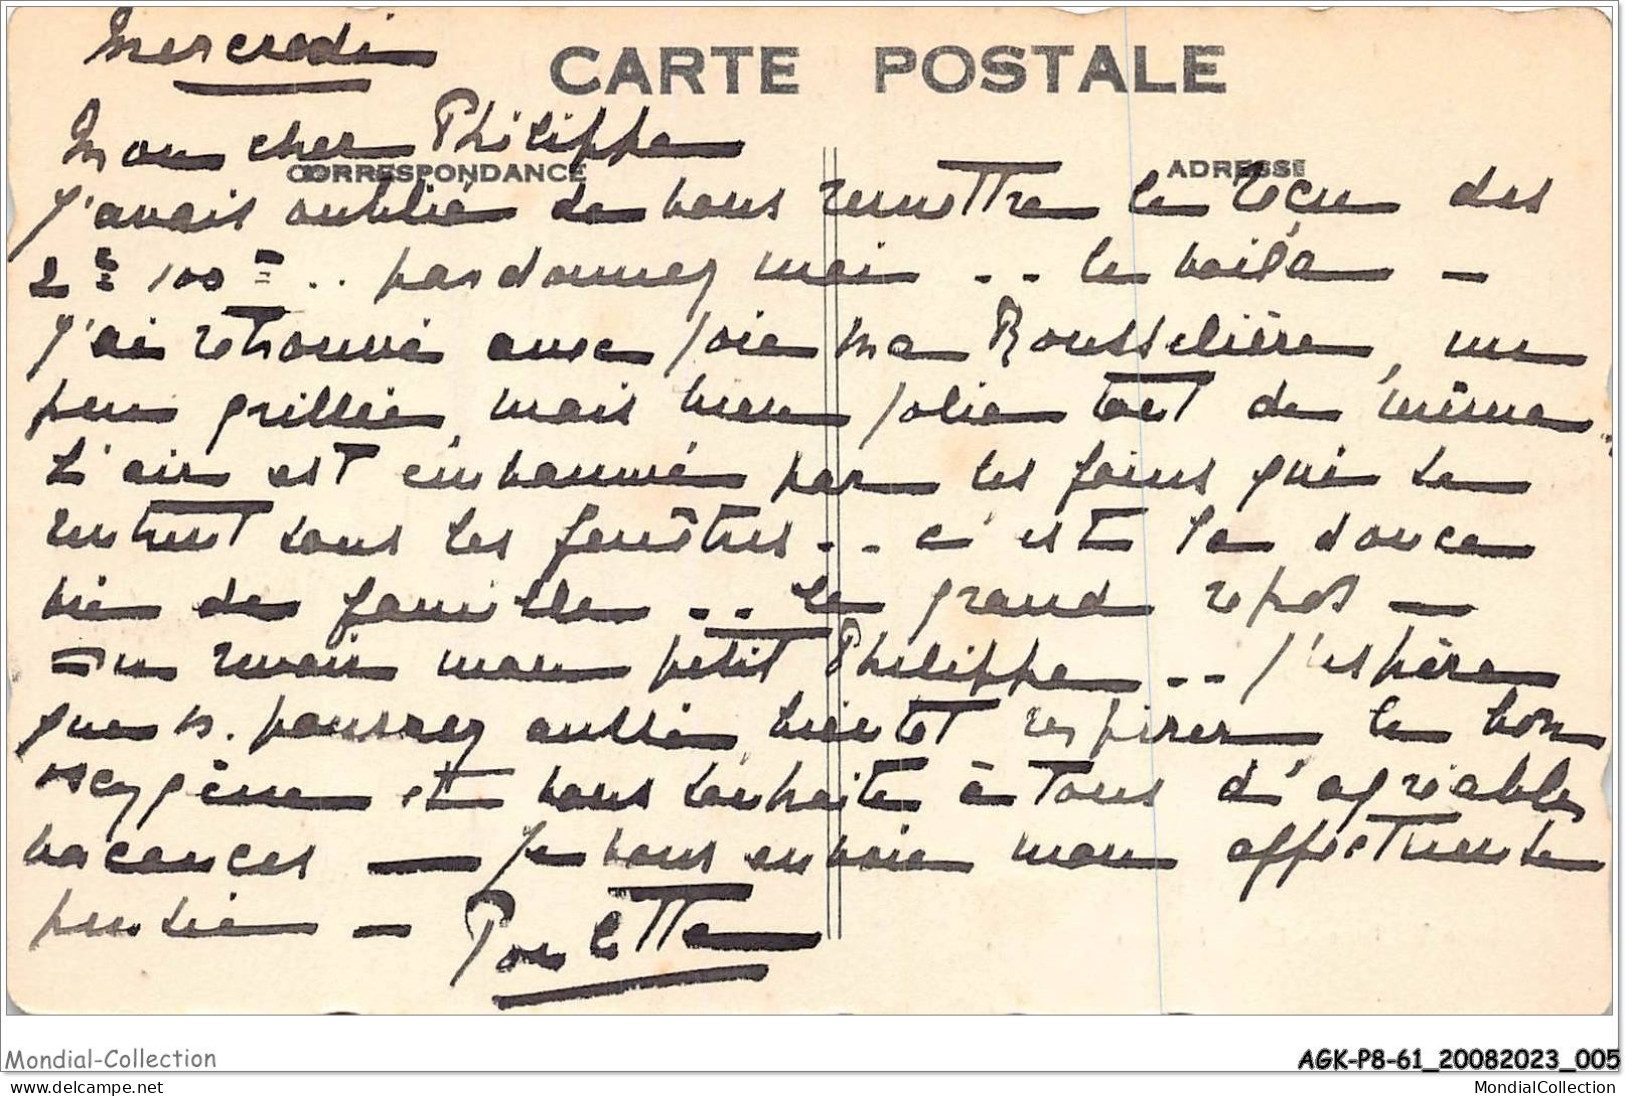 Mercredi
CARTE POSTALE
Mon cher Philippe
CORRESPONDANCE
ADRESSE
J'avais oublié de vous remettre le reçu des
2 100 .. pardonnez moi .. le voilà -
J'ai retrouvé avec joie ma Rousselière, une
peu grillée, mais bien jolie tout de même..
L'air est embaumé par les foins qui se
rentrent sous les fenêtres .. c'est la douce
vie de famille .. Le grand repos -
mon petit Philippe .. J'espère
que v. pourrez aussi bientôt respirer le bon
oxygène et vous souhaite à tous d'agréables
vacances — Je vous envoie mon affectueuse
pensée - Poulette
Mondial-Collection
AGK-P8-61_20082023_005
www.delcampe.net
MondialCollection